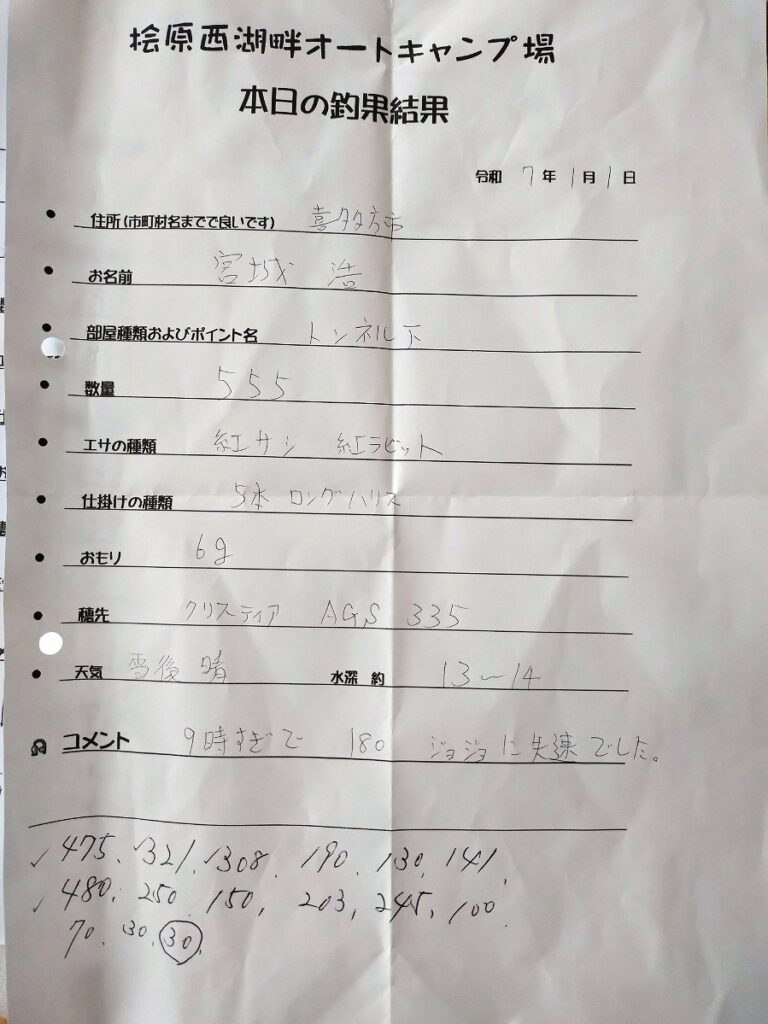 桧原西湖畔オートキャンプ場
本日の釣果結果
令和 7年 1月 1日
住所(市町村名までで良いです) 喜多方市
お名前 宮城 浩
部屋種類およびポイント名 トンネル下
数量 555
エサの種類 紅サシ 紅ラビット
仕掛けの種類 5本 ロングハリス
おもり 6g
穂先 クリスティア AGS 335
天気 雪後晴 水深 約 13〜14
コメント 9時すぎで 180 ジョジョに失速でした。
✓475、✓321、✓308、190、130、141、
✓480、250、150、203、245、100、
70、30、30、